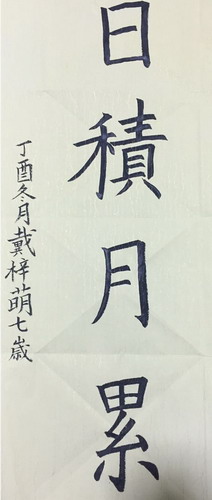 日積月累
丁酉冬月戴梓萌七歲